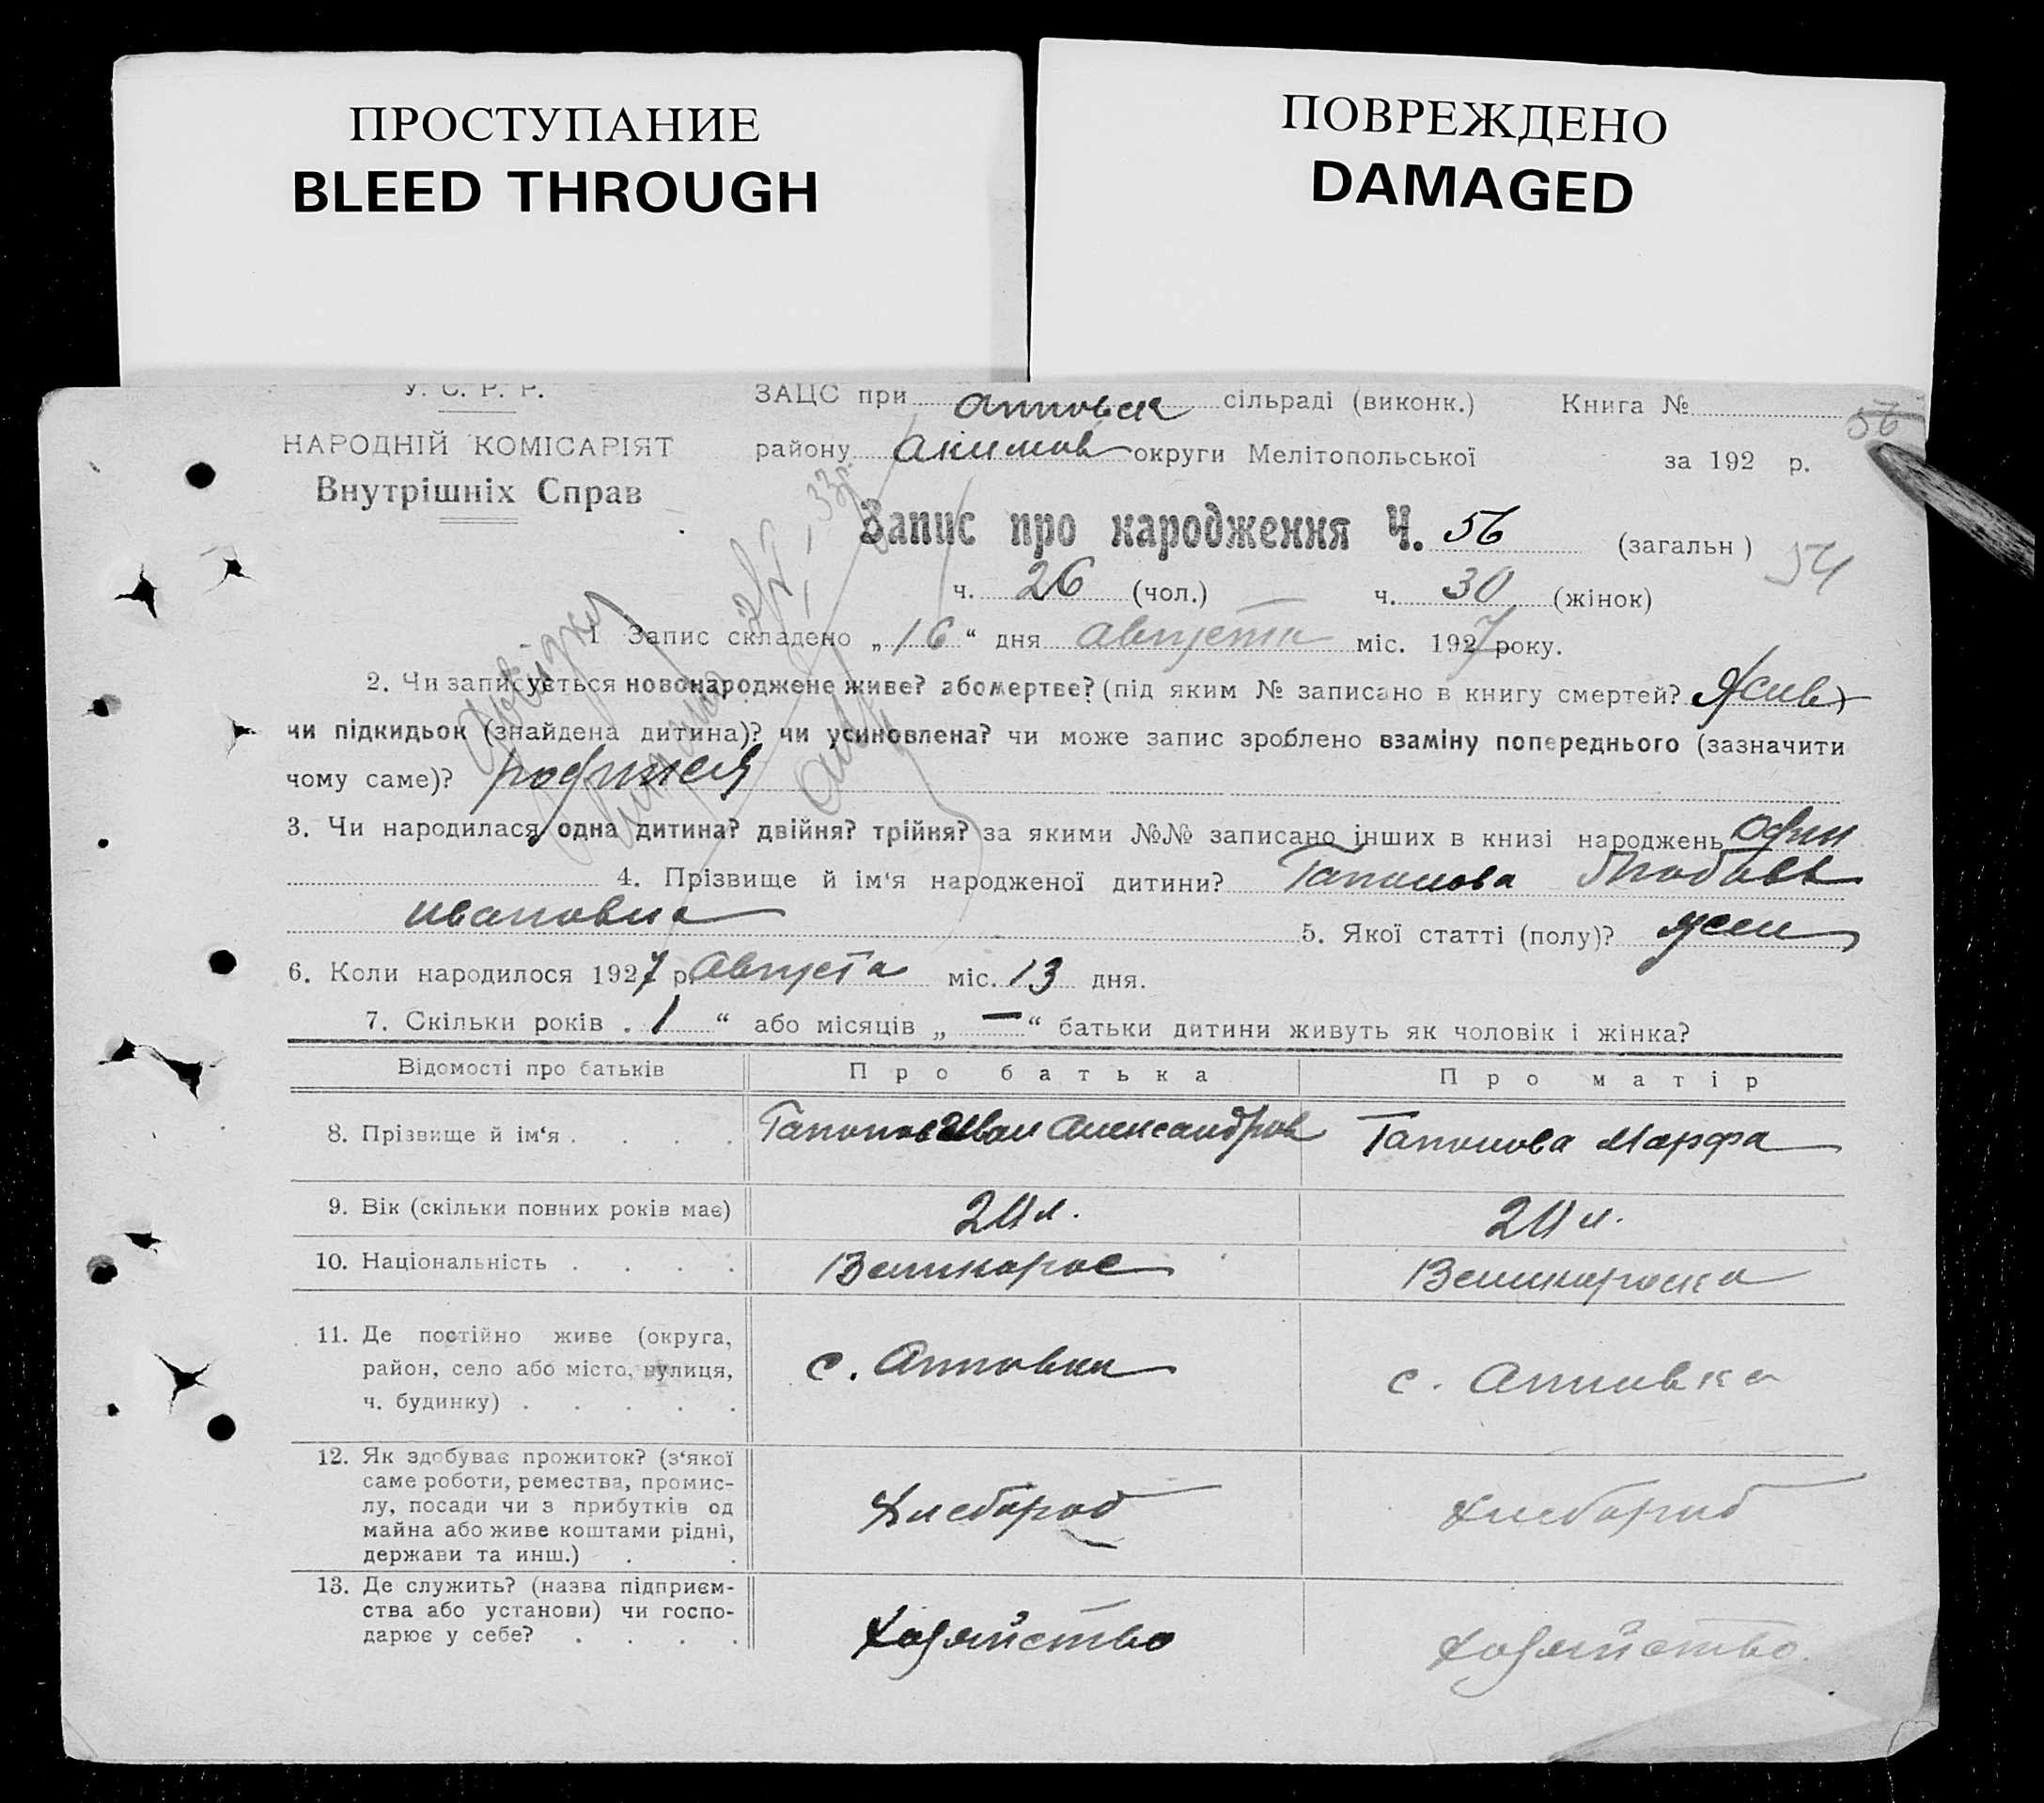 ПРОСТУПАНИЕ
BLEED THROUGH
ПОВРЕЖДЕНО
DAMAGED
У. С. Р. Р.
НАРОДНІЙ КОМІСАРІЯТ
Внутрішніх Справ
ЗАЦС при Анновск сільраді (виконк.) Книга №
56
району Акимов округи Мелітопольської за 192 р.
Запис про народження Ч. 56 (загальн)
54
ч. 26 (чол.) ч. 30 (жінок)
1 Запис складено „16“ дня Августа міс. 1927 року.
2. Чи записується новонароджене живе? або мертве? (під яким № записано в книгу смертей? Жив)
чи підкидьок (знайдена дитина)? чи усиновлена? чи може запис зроблено взаміну попереднього (зазначити
чому саме)? родился
3. Чи народилася одна дитина? двійня? трійня? за якими №№ записано інших в книзі народжень один
4. Прізвище й ім‘я народженої дитини? Гапонова Любовь
Ивановна 5. Якої статті (полу)? жен
6. Коли народилося 1927 р. Августа міс. 13 дня.
7. Скільки років „1“ або місяців „—“ батьки дитини живуть як чоловік і жінка?
Відомості про батьків Про батька Про матір
8. Прізвище й ім‘я . . . . Гапонов Иван Александров Гапонова Марфа
9. Вік (скільки повних років має) 20 л. 20 л.
10. Національність . . . . Великорос Великороска
11. Де постійно живе (округа,
район, село або місто, вулиця,
ч. будинку) . . . . . с. Анновка с. Анновка
12. Як здобуває прожиток? (з‘якої
саме роботи, ремества, промис-
лу, посади чи з прибутків од
майна або живе коштами рідні,
держави та инш.) . . Хлебороб Хлебороб
13. Де служить? (назва підприєм-
ства або установи) чи госпо-
дарює у себе? . . . . Хозяйство Хозяйство.